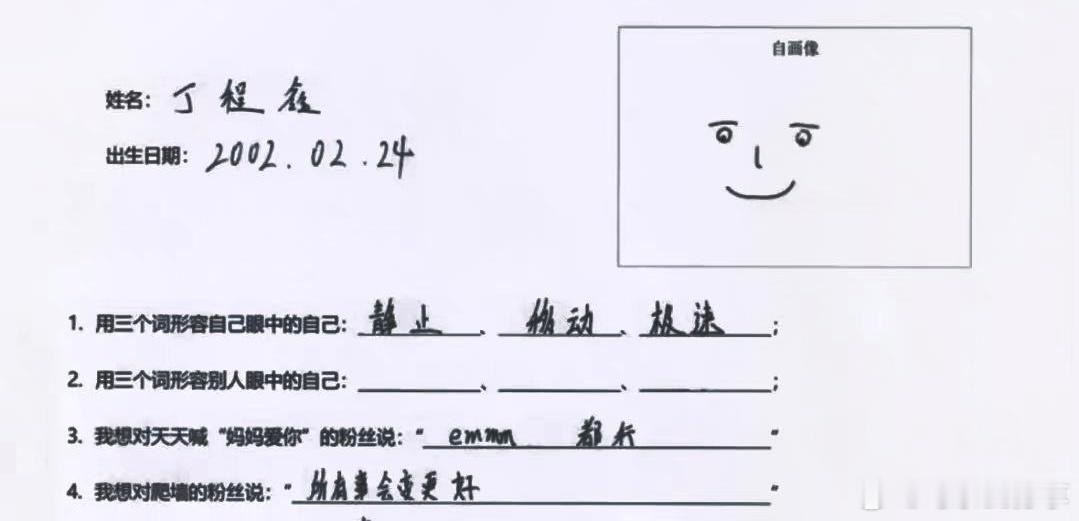 自画像
姓名：丁程鑫
出生日期：2002.02.24
1. 用三个词形容自己眼中的自己：静止、移动、极速；
2. 用三个词形容别人眼中的自己：____、____、____；
3. 我想对天天喊“妈妈爱你”的粉丝说：“emmm 都行”
4. 我想对爬墙的粉丝说：“所有事会变更好”